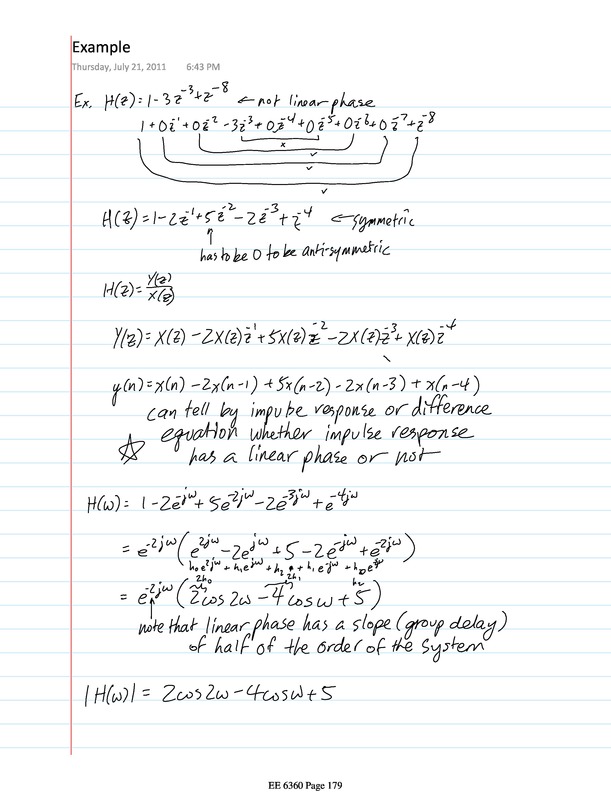 Example
Thursday, July 21, 2011 6:43 PM
Ex. H(z)=1-3z⁻³+z⁻⁸ ← not linear phase
1+0z⁻¹+0z⁻²-3z⁻³+0z⁻⁴+0z⁻⁵+0z⁻⁶+0z⁻⁷+z⁻⁸
x
✓
✓
✓
H(z)=1-2z⁻¹+5z⁻²-2z⁻³+z⁻⁴ ← symmetric
↑
has to be 0 to be anti-symmetric
H(z)=Y(z)/X(z)
Y(z)=X(z)-2X(z)z⁻¹+5X(z)z⁻²-2X(z)z⁻³+X(z)z⁻⁴
y(n)=x(n)-2x(n-1)+5x(n-2)-2x(n-3)+x(n-4)
can tell by impulse response or difference
☆ equation whether impulse response
has a linear phase or not
H(ω)= 1-2e^-jω+5e^-2jω-2e^-3jω+e^-4jω
= e^-2jω(e^2jω-2e^jω+5-2e^-jω+e^-2jω)
= e^-2jω(2cos2ω-4cosω+5)
2h₀ 2h₁ h₂
note that linear phase has a slope (group delay)
of half of the order of the system
|H(ω)| = 2cos2ω-4cosω+5
EE 6360 Page 179